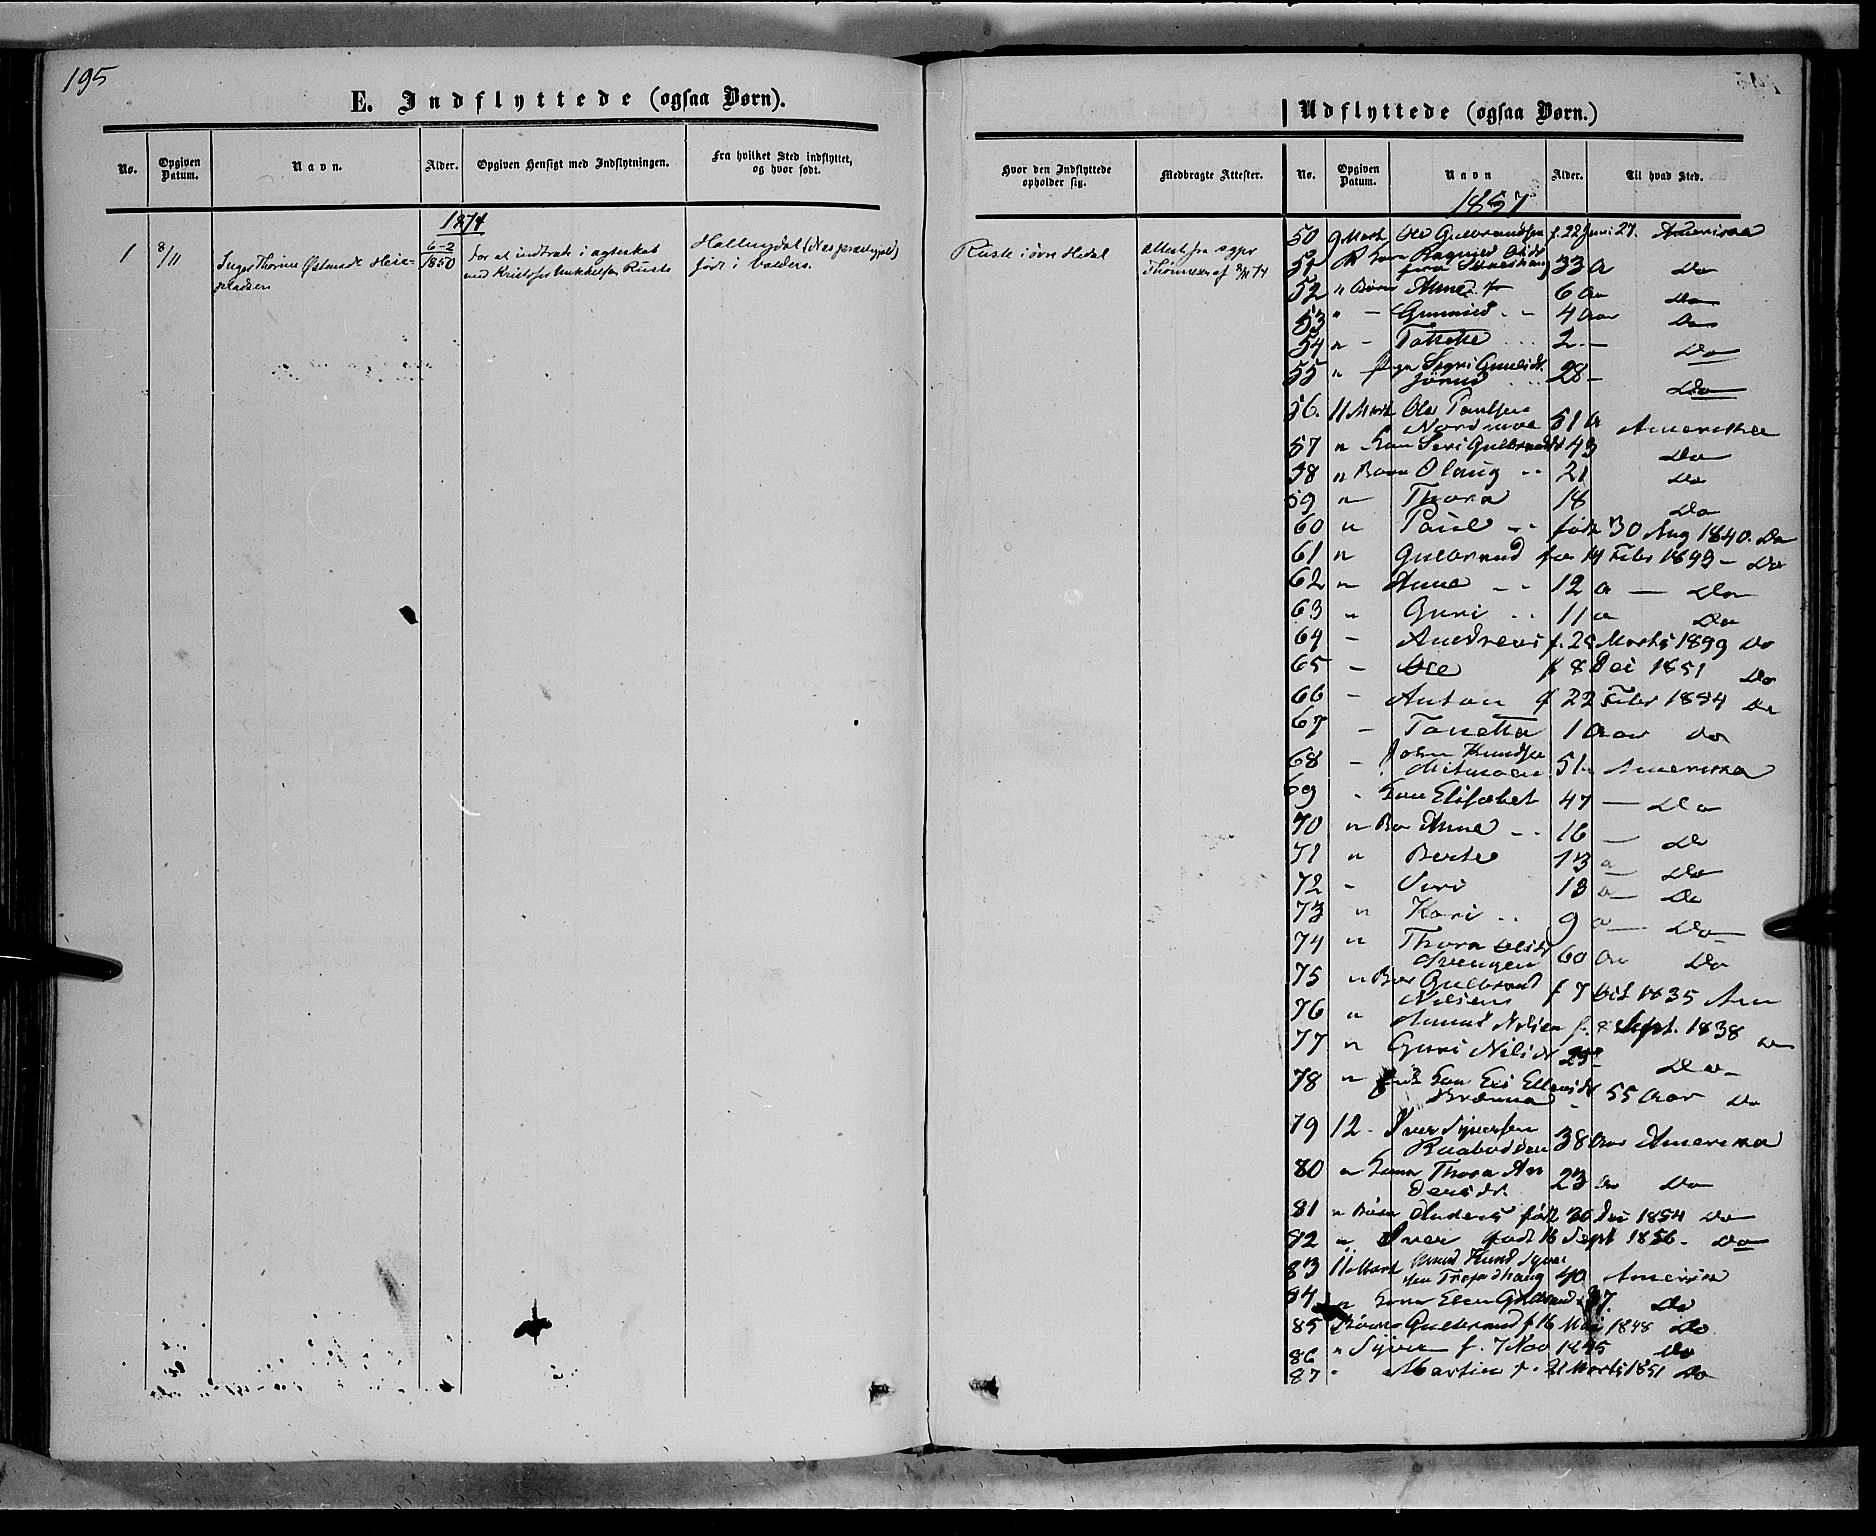 195
E. Indflyttede (ogsaa Børn).
No.
Opgiven Datum.
Navn.
Alder.
Opgiven Hensigt med Indflytningen.
Fra hvilket Sted indflyttet, og hvor født.
1874
1 8/11 Inger Thorine Østensdr Heie- 6-2 1850 For at indtræde i ægteskab Hallingdal (Nes præstegjeld)
pladsen med Kristofer Mikkelsen Ruste født i Valders.
Udflyttede (ogsaa Børn.)
Hvor den Indflyttede opholder sig.
Medbragte Attester.
No.
Opgiven Datum.
Navn
Alder.
Til hvad Sted.
1857
Ruste i øvre Hedal Attest fra sgpr
8/11 74
50 9 Marts Ole Gulbrandsen f. 22 Juni 27. Amerika
51 Kone Ragnild Olsdr 33 a Do
52 " Børn Anne 6 aar Do
53 " - Gunnild - - 4 Aar Do
54 " - 2 - Do
55 " Sigri 28 - Do
56. 11 Marts Ole Paulsen
Nordmoe 51 a Amerika
57 " Kone Siri Gulbrandsd 43 Do
58 " Børn Olaug - - 21 Do
59 " Thora 18 Do
60 " Paul - - født 30 Aug 1840. Do
61 " Gulbrand fø 14 Febr 1843 - Do
62 " Anne - - 12 a - Do
63 " Guri - - 11 a Do
64 - Andreas f. Marts 1849 Do
65 - Ole f 8 Dec 1851 Do
66 - Anton f 22 Febr 1854 Do
67 - Tonetta 1 Aar Do
68 - John Knudsen
51 Amerika
69 " Kone Elisabet 47 - Do
70 " Bø Anne - - 16 - Do
71 " Berte 13 a Do
72 - Siri 13 a - Do
73 " Kari - - 9 a - Do
74 " Thora Olsdr
60 Aar Do
75 " Bør Gulbrand
Nilsen f 7 Oct 1835 Am
76 " Amund Nilsen f. 8 Sept. 1838 Do
77 " Guri Nilsdr 25 Do
78 " Kone Eli Ellevsdr
Brænna 55 Aar Do
79 12 - Iver Syversen
38 Aar Amerika
80 " Kone Thora An
dersdr. 23 Aar Do
81 " Børn Anders født 30 Dec 1854 Do
82 " Iver født 16 Sept 1856 - Do
83 11 Marts Knud Syver
sen 40 Amerika
84 " Kone 37. Do
85 Børn Gulbrand f 16 Mai 1848 Do
86 " Syver f. 7 Nov 1845 Do
87 " Martin f. 21 Marts 1851 Do